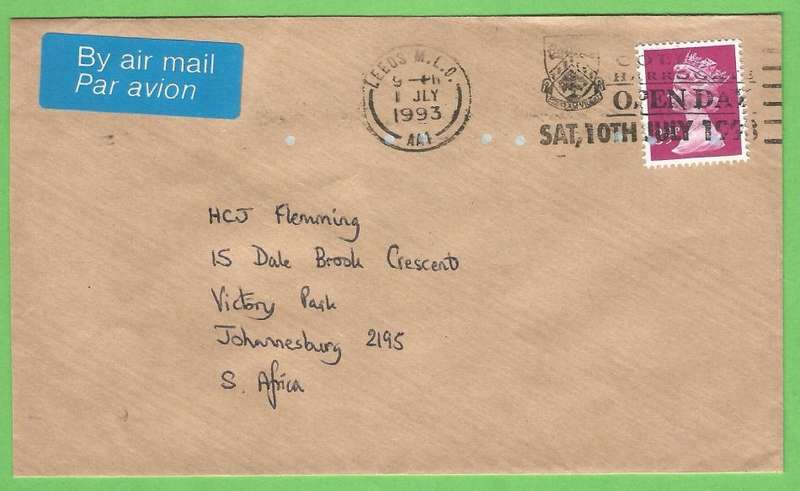 By air mail
Par avion
LEEDS M.L.O.
1 JLY
1993
HARROGATE
OPEN DAY
SAT, 10TH JULY 1993
HCJ Flemming
15 Dale Brook Crescent
Victory Park
Johannesburg 2195
S. Africa